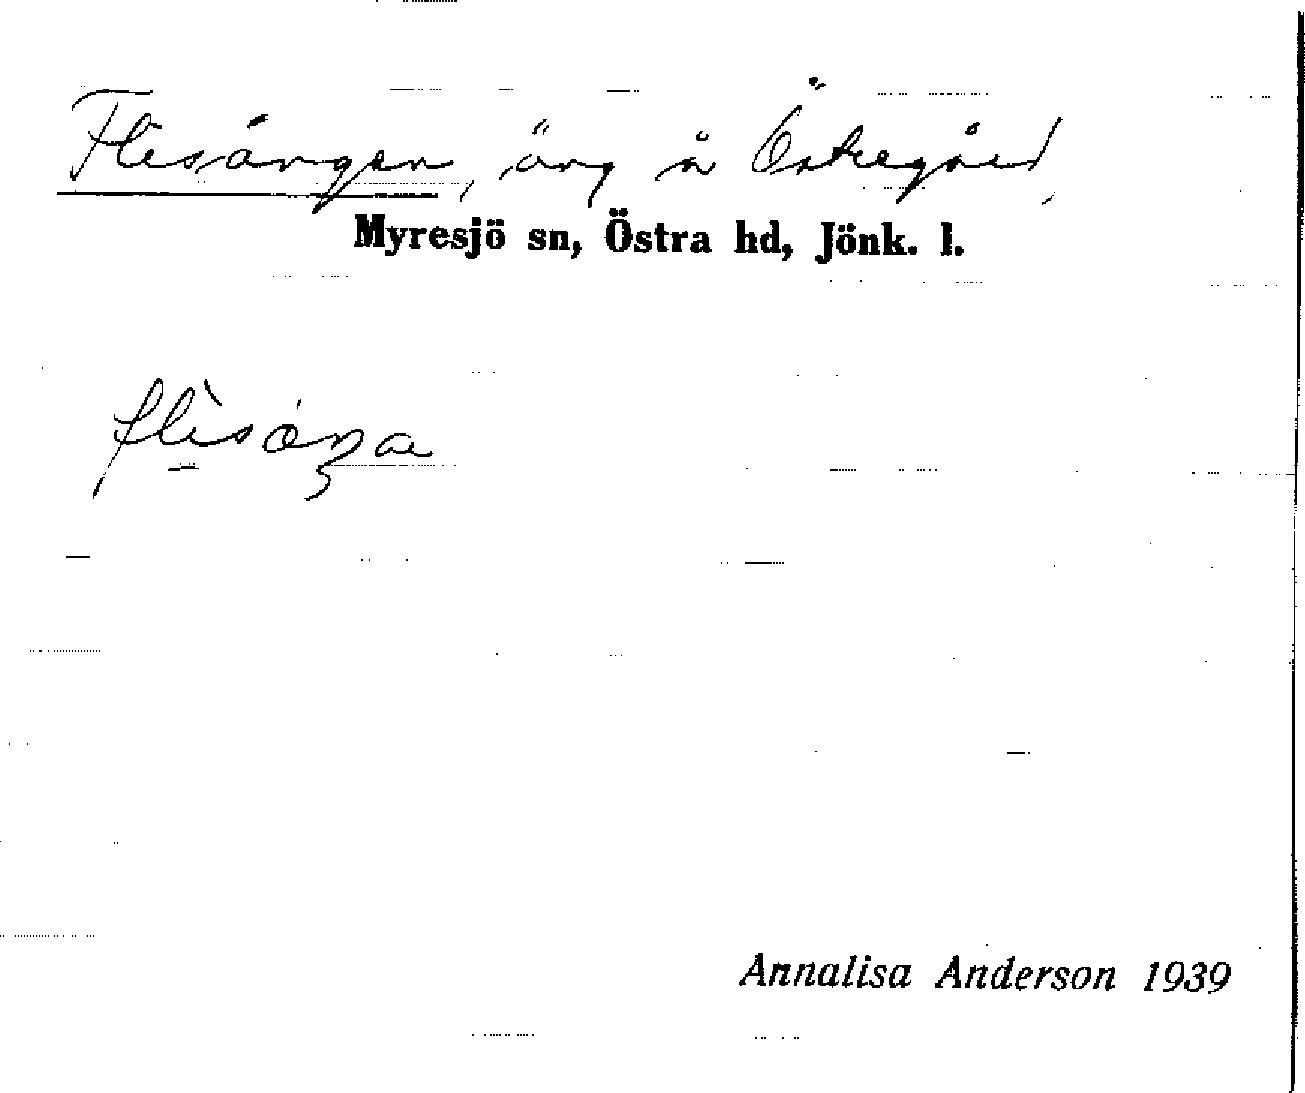 Flisängen, äng å Östregård,
Myresjö sn, Östra hd, Jönk. l.
Annalisa Anderson 1939